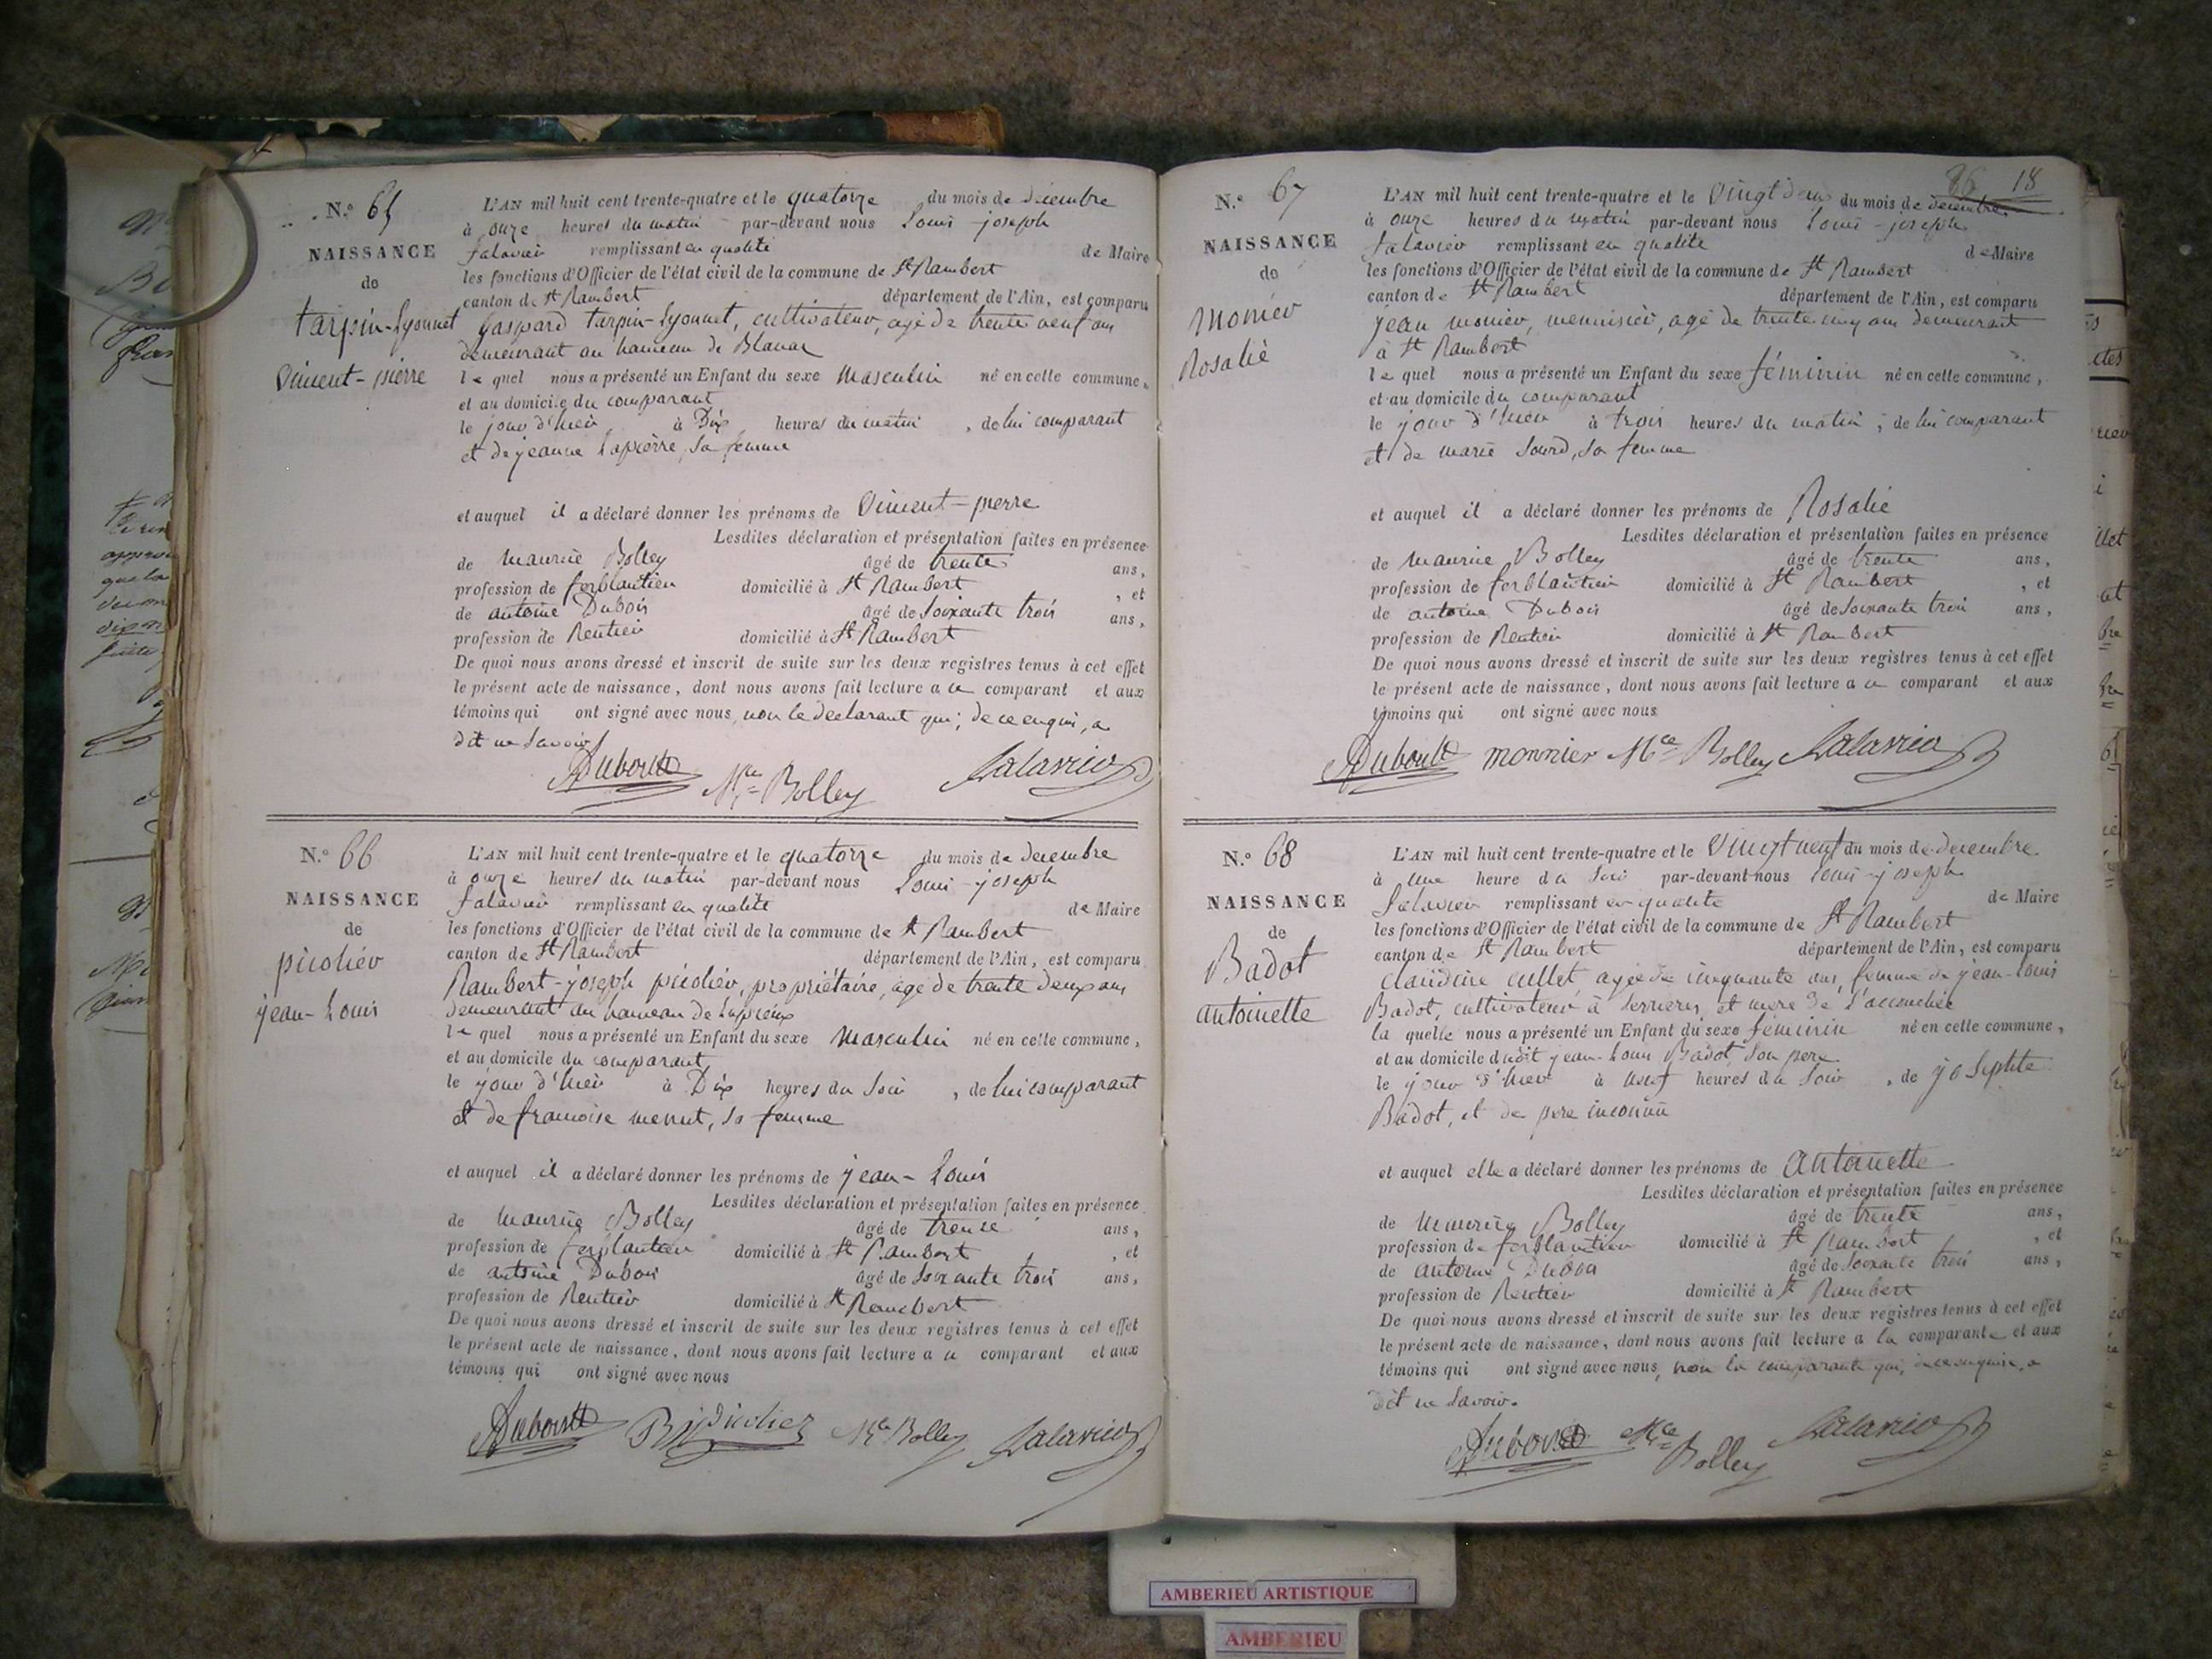 N.° 65
NAISSANCE
de
tarpin-Lyonnet
Vincent-pierre
L'AN mil huit cent trente-quatre et le quatorze du mois de décembre
à onze heures du matin par-devant nous Louis-joseph
falavier remplissant en qualité de Maire
les fonctions d'Officier de l'état civil de la commune de St Rambert
canton de St Rambert département de l'Ain, est comparu
gaspard tarpin-Lyonnet, cultivateur, agé de trente neuf ans
demeurant au hameau de Blanaz
le quel nous a présenté un Enfant du sexe Masculin né en cette commune,
et au domicile du comparant
le jour d'hier à Dix heures du matin, de lui comparant
et de jeanne Lapierre, sa femme
et auquel il a déclaré donner les prénoms de Vincent-pierre
Lesdites déclaration et présentation faites en présence
de Maurice Bolley âgé de trente ans,
profession de ferblantier domicilié à St Rambert, et
de antoine Dubois âgé de Soixante trois ans,
profession de Rentier domicilié à St Rambert
De quoi nous avons dressé et inscrit de suite sur les deux registres tenus à cet effet
le présent acte de naissance, dont nous avons fait lecture a ce comparant et aux
témoins qui ont signé avec nous, non le declarant qui, de ce enquis, a
dit ne savoir
Dubois Mce Bolley falavier
N.° 66
NAISSANCE
de
picolier
jean-Louis
L'AN mil huit cent trente-quatre et le quatorze du mois de decembre
à onze heures du matin par-devant nous Louis-joseph
falavier remplissant en qualité de Maire
les fonctions d'Officier de l'état civil de la commune de St Rambert
canton de St Rambert département de l'Ain, est comparu
Rambert-joseph picolier, propriétaire, agé de trente deux ans
demeurant au hameau de Lupieux
le quel nous a présenté un Enfant du sexe Masculin né en cette commune,
et au domicile du comparant
le jour d'hier à Dix heures du Soir, de lui comparant
et de francoise menut, sa femme
et auquel il a déclaré donner les prénoms de jean-Louis
Lesdites déclaration et présentation faites en présence
de Maurice Bolley âgé de trente ans,
profession de ferblantier domicilié à St Rambert, et
de antoine Dubois âgé de Soixante trois ans,
profession de Rentier domicilié à St Rambert
De quoi nous avons dressé et inscrit de suite sur les deux registres tenus à cet effet
le présent acte de naissance, dont nous avons fait lecture a ce comparant et aux
témoins qui ont signé avec nous
Dubois picolier Mce Bolley falavier
86 18
N.° 67
NAISSANCE
de
Monier
Rosalie
L'AN mil huit cent trente-quatre et le Vingt deux du mois de decembre
à onze heures du matin par-devant nous Louis-joseph
falavier remplissant en qualité de Maire
les fonctions d'Officier de l'état civil de la commune de St Rambert
canton de St Rambert département de l'Ain, est comparu
jean monier, mennisier, agé de trente cinq ans demeurant
à St Rambert
le quel nous a présenté un Enfant du sexe féminin né en cette commune,
et au domicile du comparant
le jour d'hier à trois heures du matin, de lui comparant
et de marie Sourd, sa femme
et auquel il a déclaré donner les prénoms de Rosalie
Lesdites déclaration et présentation faites en présence
de Maurice Bolley âgé de trente ans,
profession de ferblantier domicilié à St Rambert, et
de antoine Dubois âgé de Soixante trois ans,
profession de Rentier domicilié à St Rambert
De quoi nous avons dressé et inscrit de suite sur les deux registres tenus à cet effet
le présent acte de naissance, dont nous avons fait lecture a ce comparant et aux
témoins qui ont signé avec nous
Dubois monnier Mce Bolley falavier
N.° 68
NAISSANCE
de
Badot
antoinette
L'AN mil huit cent trente-quatre et le Vingt neuf du mois de decembre
à une heure du Soir par-devant nous Louis-joseph
falavier remplissant en qualité de Maire
les fonctions d'Officier de l'état civil de la commune de St Rambert
canton de St Rambert département de l'Ain, est comparu
claudine cullet, agée de cinquante ans, femme de jean-Louis
Badot, cultivateur à Serrieres, et mere de l'accouchée
la quelle nous a présenté un Enfant du sexe féminin né en cette commune,
et au domicile dudit jean-Louis Badot son pere
le jour d'hier à neuf heures du Soir, de josephte
Badot, et de pere inconnu
et auquel elle a déclaré donner les prénoms de antoinette
Lesdites déclaration et présentation faites en présence
de Maurice Bolley âgé de trente ans,
profession de ferblantier domicilié à St Rambert, et
de antoine Dubois âgé de Soixante trois ans,
profession de Rentier domicilié à St Rambert
De quoi nous avons dressé et inscrit de suite sur les deux registres tenus à cet effet
le présent acte de naissance, dont nous avons fait lecture a la comparante et aux
témoins qui ont signé avec nous, non la comparante qui, de ce enquise, a
dit ne savoir.
Dubois Mce Bolley falavier
AMBERIEU ARTISTIQUE
AMBERIEU